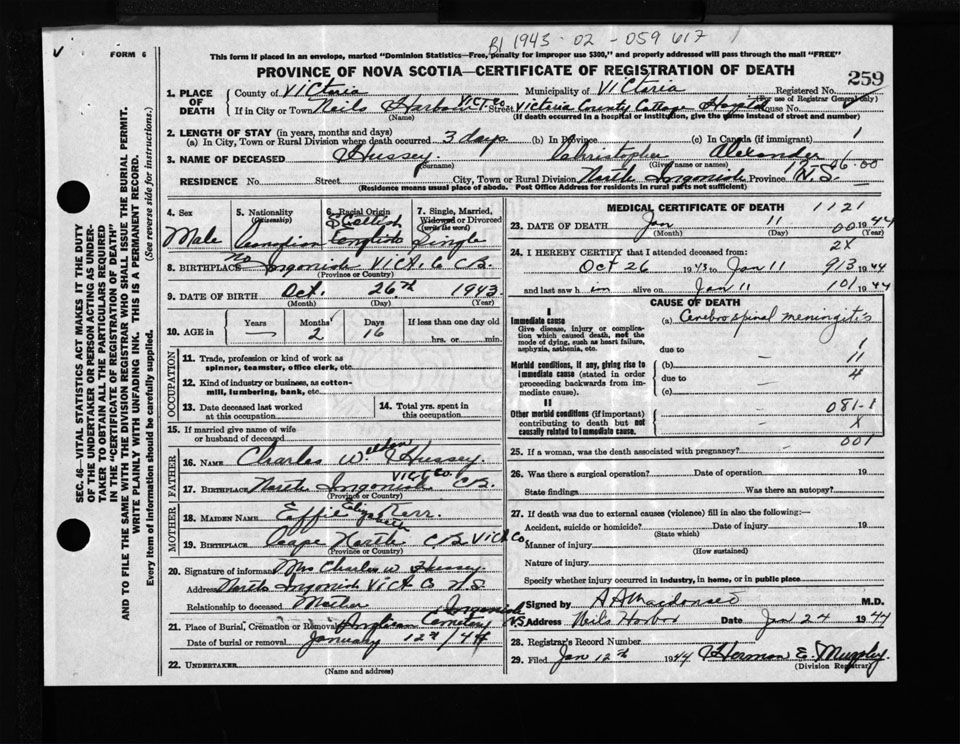 B1 1943-02-059617
FORM 6
This form if placed in an envelope, marked "Dominion Statistics—Free, penalty for improper use $300," and properly addressed will pass through the mail "FREE"
PROVINCE OF NOVA SCOTIA—CERTIFICATE OF REGISTRATION OF DEATH
259
1. PLACE OF DEATH County of Victoria Municipality of Victoria Registered No.
(For use of Registrar General only)
If in City or Town Neils Harbour Vict Co Street Victoria County Cottage Hospital House No.
(Name) (If death occurred in a hospital or institution, give the name instead of street and number)
2. LENGTH OF STAY (in years, months and days)
(a) In City, Town or Rural Division where death occurred 3 days (b) In Province (c) In Canada (if immigrant) 1
3. NAME OF DECEASED Hussey Christopher Alexander
(Surname) (Given name or names)
RESIDENCE No. Street City, Town or Rural Division North Ingonish Province N.S.
(Residence means usual place of abode. Post Office Address for residents in rural parts not sufficient)
4. Sex Male
5. Nationality (Citizenship) Canadian
6. Racial Origin Scottish English
7. Single, Married, Widowed or Divorced (write the word) Single
8. BIRTHPLACE No Ingonish Vict. Co C.B.
(Province or Country)
9. DATE OF BIRTH Oct. 26th 1943
(Month) (Day) (Year)
10. AGE in Years — Months 2 Days 16 If less than one day old hrs. or min.
OCCUPATION
11. Trade, profession or kind of work as spinner, teamster, office clerk, etc.
12. Kind of industry or business, as cotton-mill, lumbering, bank, etc.
13. Date deceased last worked at this occupation
14. Total yrs. spent in this occupation
15. If married give name of wife or husband of deceased
FATHER
16. NAME Charles Weldon Hussey
17. BIRTHPLACE North Ingonish Vict Co. C.B.
(Province or Country)
MOTHER
18. MAIDEN NAME Effie Elizabeth Kerr
19. BIRTHPLACE Cape North C.B. Vict Co.
(Province or Country)
20. Signature of informant Mrs Charles W Hussey
Address North Ingonish Vict Co N.S
Relationship to deceased Mother
21. Place of Burial, Cremation or Removal Anglican Cemetery Ingonish N.S.
Date of burial or removal January 12th/44
22. UNDERTAKER
(Name and address)
MEDICAL CERTIFICATE OF DEATH 1121
23. DATE OF DEATH Jan 11 00 1944
(Month) (Day) (Year)
24. I HEREBY CERTIFY that I attended deceased from: 2X
Oct 26 1943 to Jan 11 913 1944
and last saw him alive on Jan 11 101 1944
CAUSE OF DEATH
I
Immediate cause (a) Cerebrospinal meningitis
Give disease, injury or complication which caused death, not the mode of dying, such as heart failure, asphyxia, asthenia, etc.
due to 1
Morbid conditions, if any, giving rise to immediate cause (stated in order proceeding backwards from immediate cause) (b) 11
due to 4
(c)
II
Other morbid conditions (if important) contributing to death but not causally related to immediate cause. 081-1
X
25. If a woman, was the death associated with pregnancy? 001
26. Was there a surgical operation? Date of operation 19
State findings Was there an autopsy?
27. If death was due to external causes (violence) fill in also the following:—
Accident, suicide or homicide? Date of injury 19
(State which)
Manner of injury
(How sustained)
Nature of injury
Specify whether injury occurred in industry, in home, or in public place
Signed by M.D.
Address Neils Harbor Date Jan 24 1944
28. Registrar's Record Number
29. Filed Jan 12th 1944 Herman E. Murphy
(Division Registrar)
SEC. 46—VITAL STATISTICS ACT MAKES IT THE DUTY
OF THE UNDERTAKER OR PERSON ACTING AS UNDER-
TAKER TO OBTAIN ALL THE PARTICULARS REQUIRED
IN THE "CERTIFICATE OF REGISTRATION OF DEATH"
AND TO FILE THE SAME WITH THE DIVISION REGISTRAR WHO SHALL ISSUE THE BURIAL PERMIT.
WRITE PLAINLY WITH UNFADING INK. THIS IS A PERMANENT RECORD.
Every item of information should be carefully supplied. (See reverse side for instructions.)